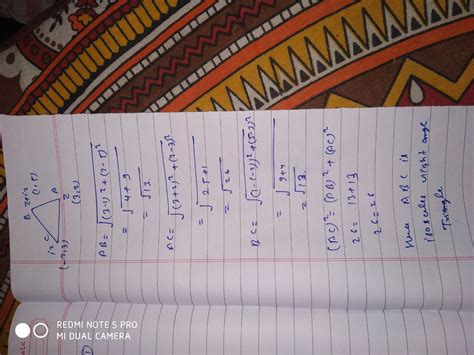 B
(1,5)
A
(3,2)
C
(-2,3)
AB = √(3-1)²+(2-5)²
= √4+9
= √13
AC = √(3+2)²+(2-3)²
= √25+1
= √26
BC = √(1-(-2))²+(5-3)²
= √9+4
= √13
(AC)² = (AB)² + (AC)²
26 = 13+13
26=26
Hence ABC is
isosceles right angle
Triangle
REDMI NOTE 5 PRO
MI DUAL CAMERA